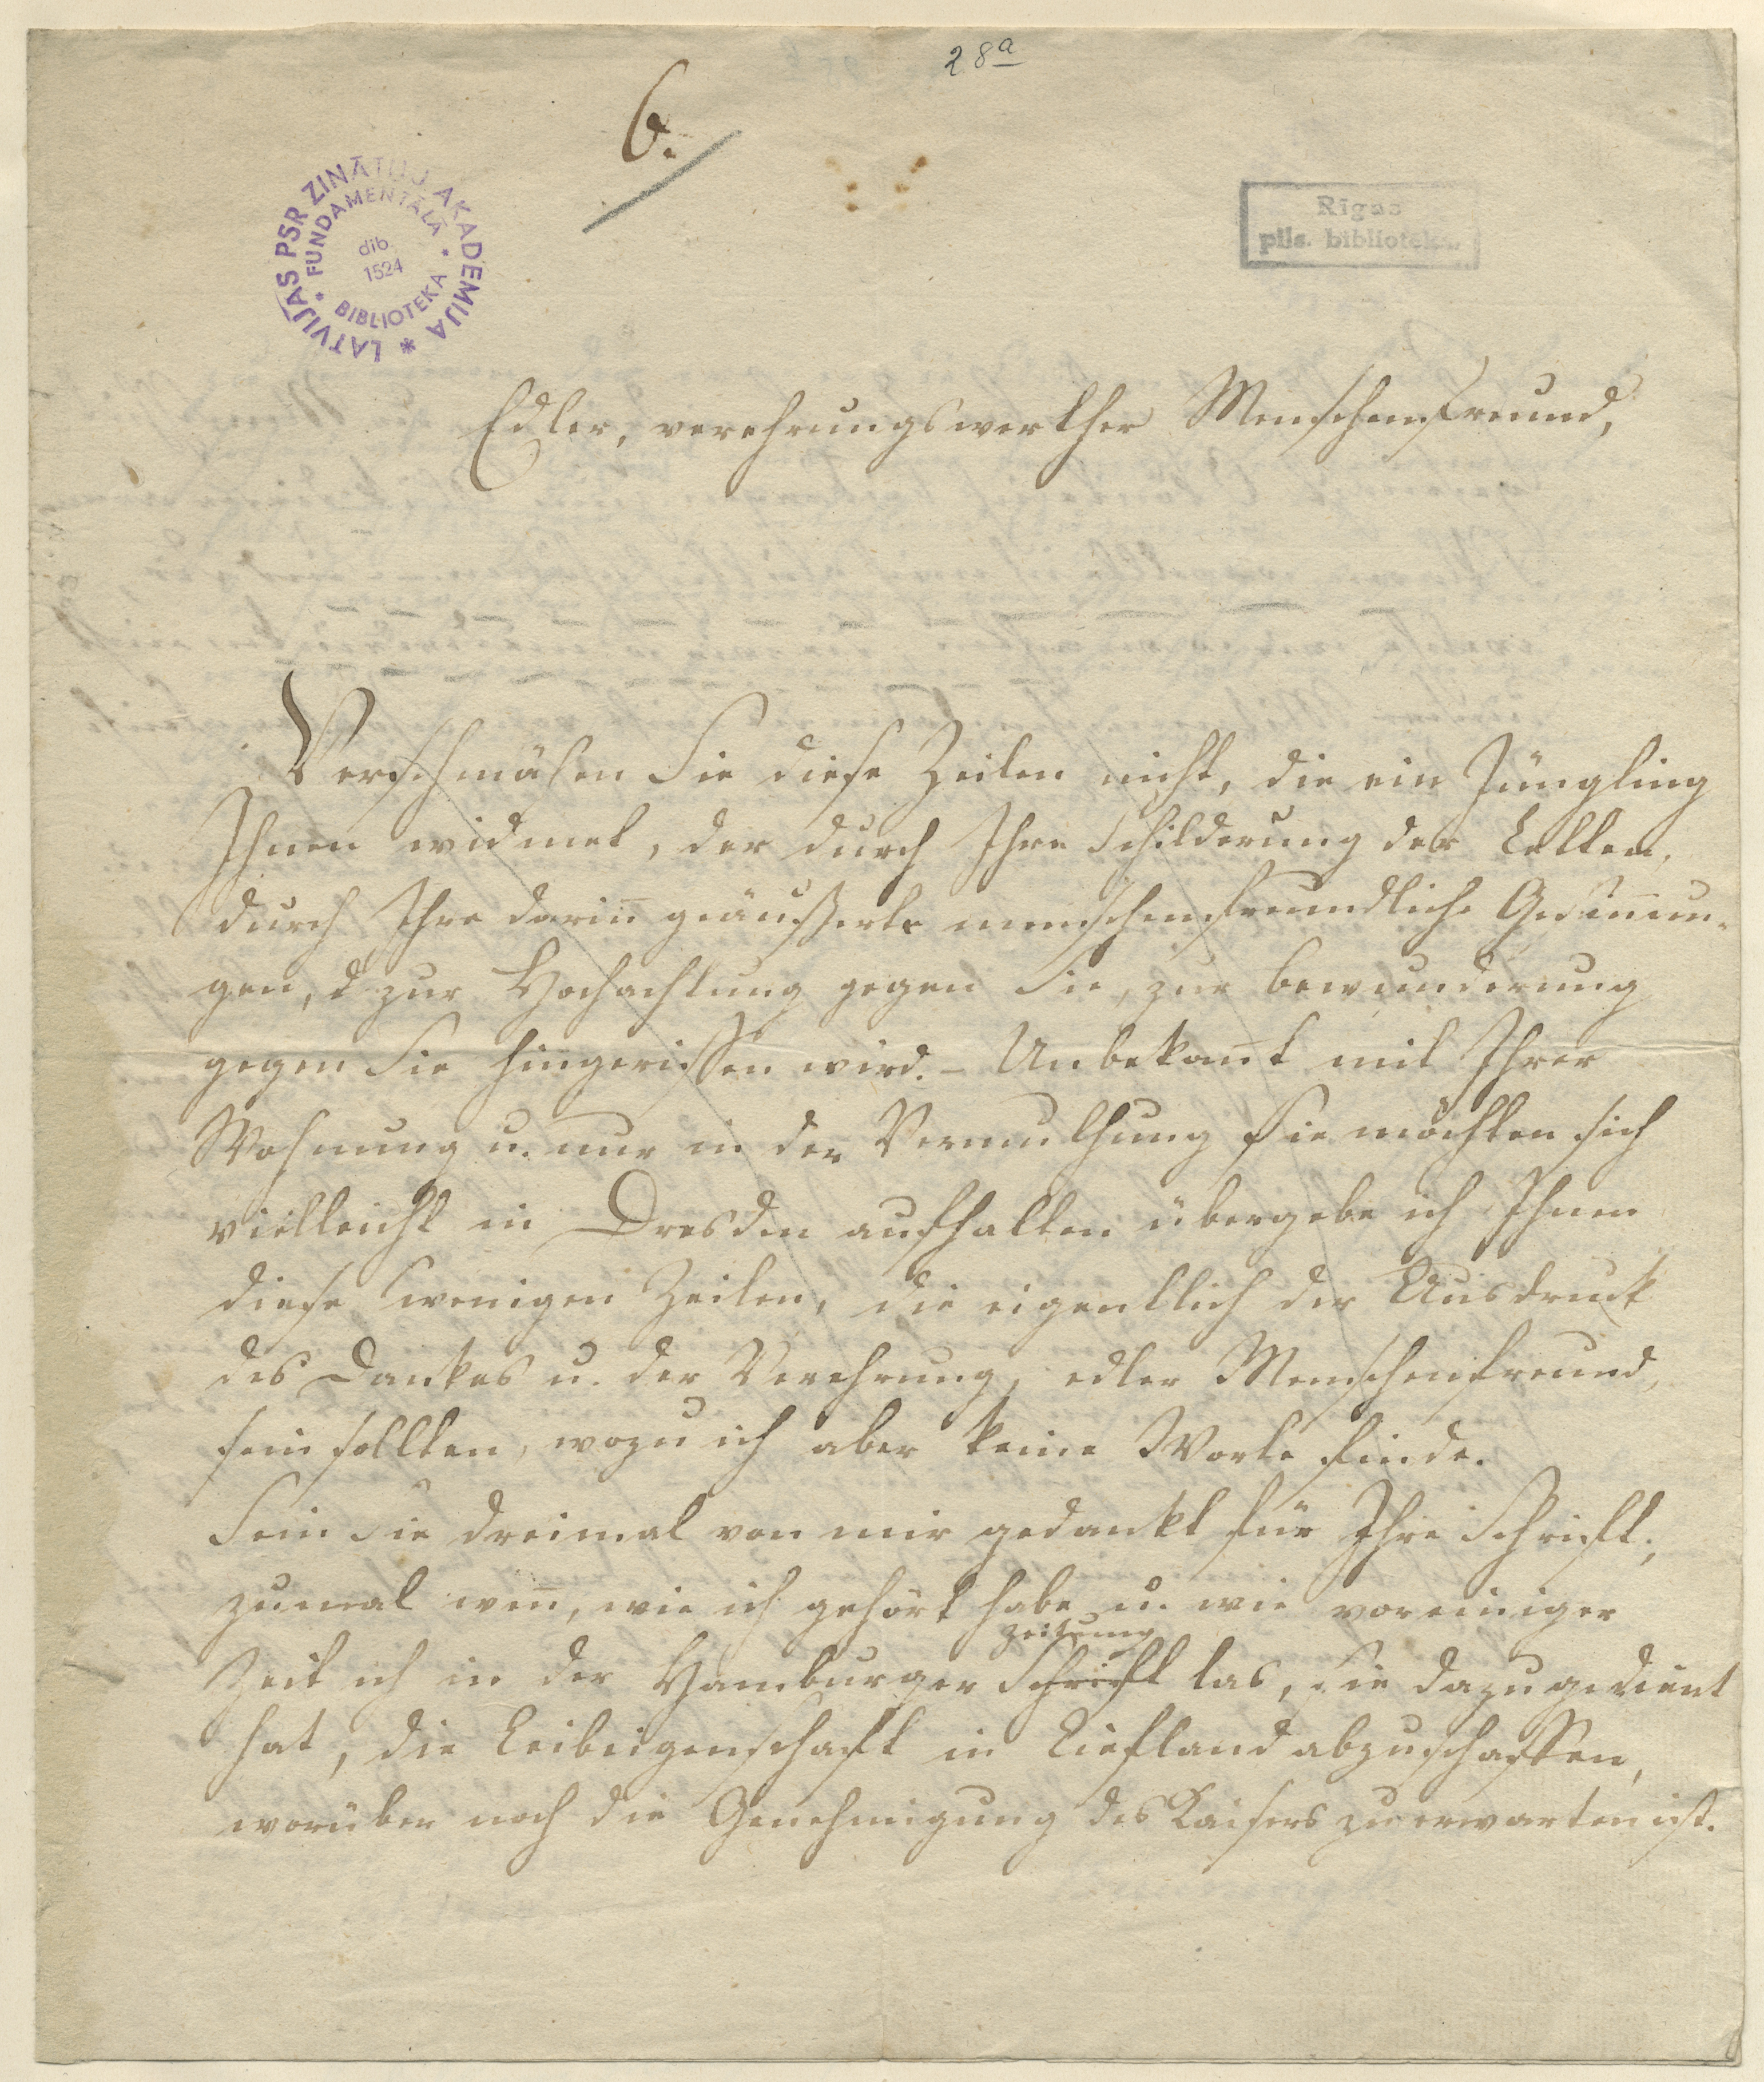 28a
6.
LATVIJAS PSR ZINĀTŅU AKADEMIJA
FUNDAMENTĀLĀ BIBLIOTEKA
dib.
1524
Rīgas
pils. bibliotēka.
Edler, verehrungswerther Menschenfreund,
Verschmähen Sie diese Zeilen nicht, die ein Jüngling
Ihnen widmet, der durch Ihre Schilderung der Letten,
durch Ihre darin̄ geäußerte menschenfreundliche Gesin̄un-
gen, d zur Hochachtung gegen Sie, zur Bewunderung
gegen Sie hingerissen wird. – Unbekan̄t mit Ihrer
Wohnung u. nur in der Vermuthung Sie möchten sich
vielleicht in Dresden aufhalten übergebe ich Ihnen
diese wenigen Zeilen, die eigentlich der Ausdruck
des Dankes u. der Verehrung, edler Menschenfreund,
sein sollten, wozu ich aber keine Worte finde.
Sein Sie dreimal von mir gedankt für Ihre Schrift,
zumal wen̄, wie ich gehört habe u. wie vor einiger
Zeitung
Zeit ich in der Hamburger Schrift las, sie dazu gedient
hat, die Leibeigenschaft in Liefland abzuschaffen,
worüber noch die Genehmigung des Kaisers zu erwarten ist.